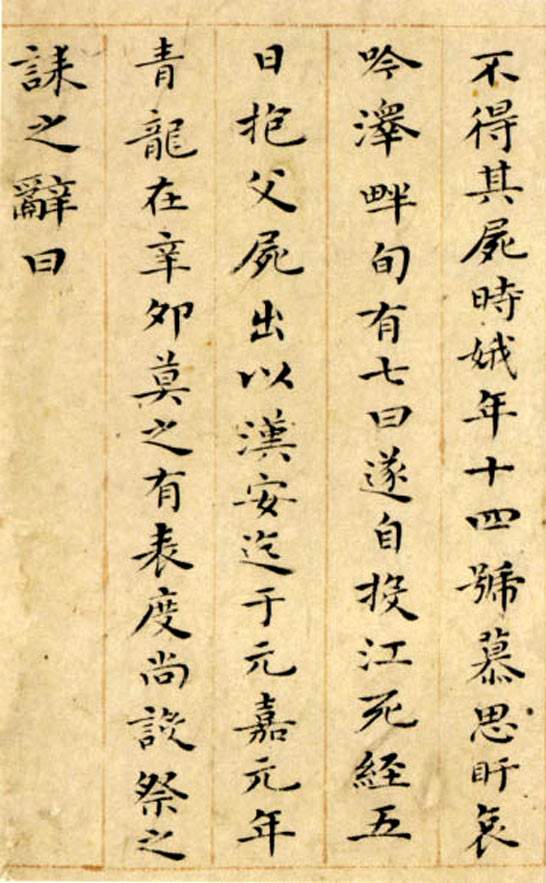 不得其屍時娥年十四號慕思盱哀
吟澤畔旬有七日遂自投江死經五
日抱父屍出以漢安迄于元嘉元年
青龍在辛夘莫之有表度尚設祭之
誄之辭曰